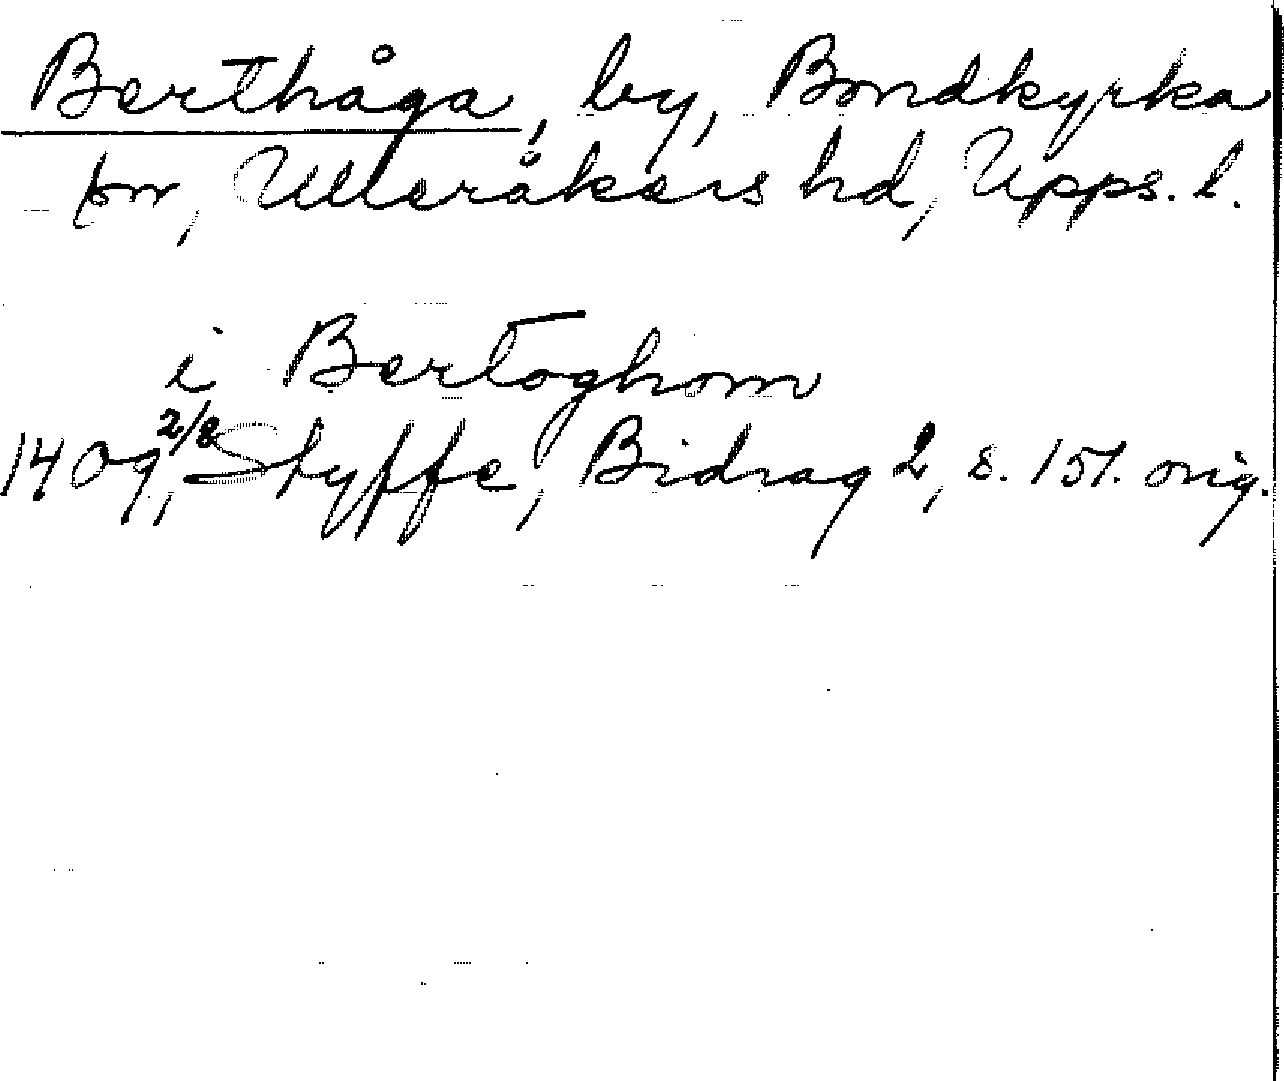 Berthåga, by, Bondkyrka
sn, Ulleråkers hd, Upps. l.
i Bertoghom
1409 2/8, Styffe, Bidrag 2, s. 151. orig.